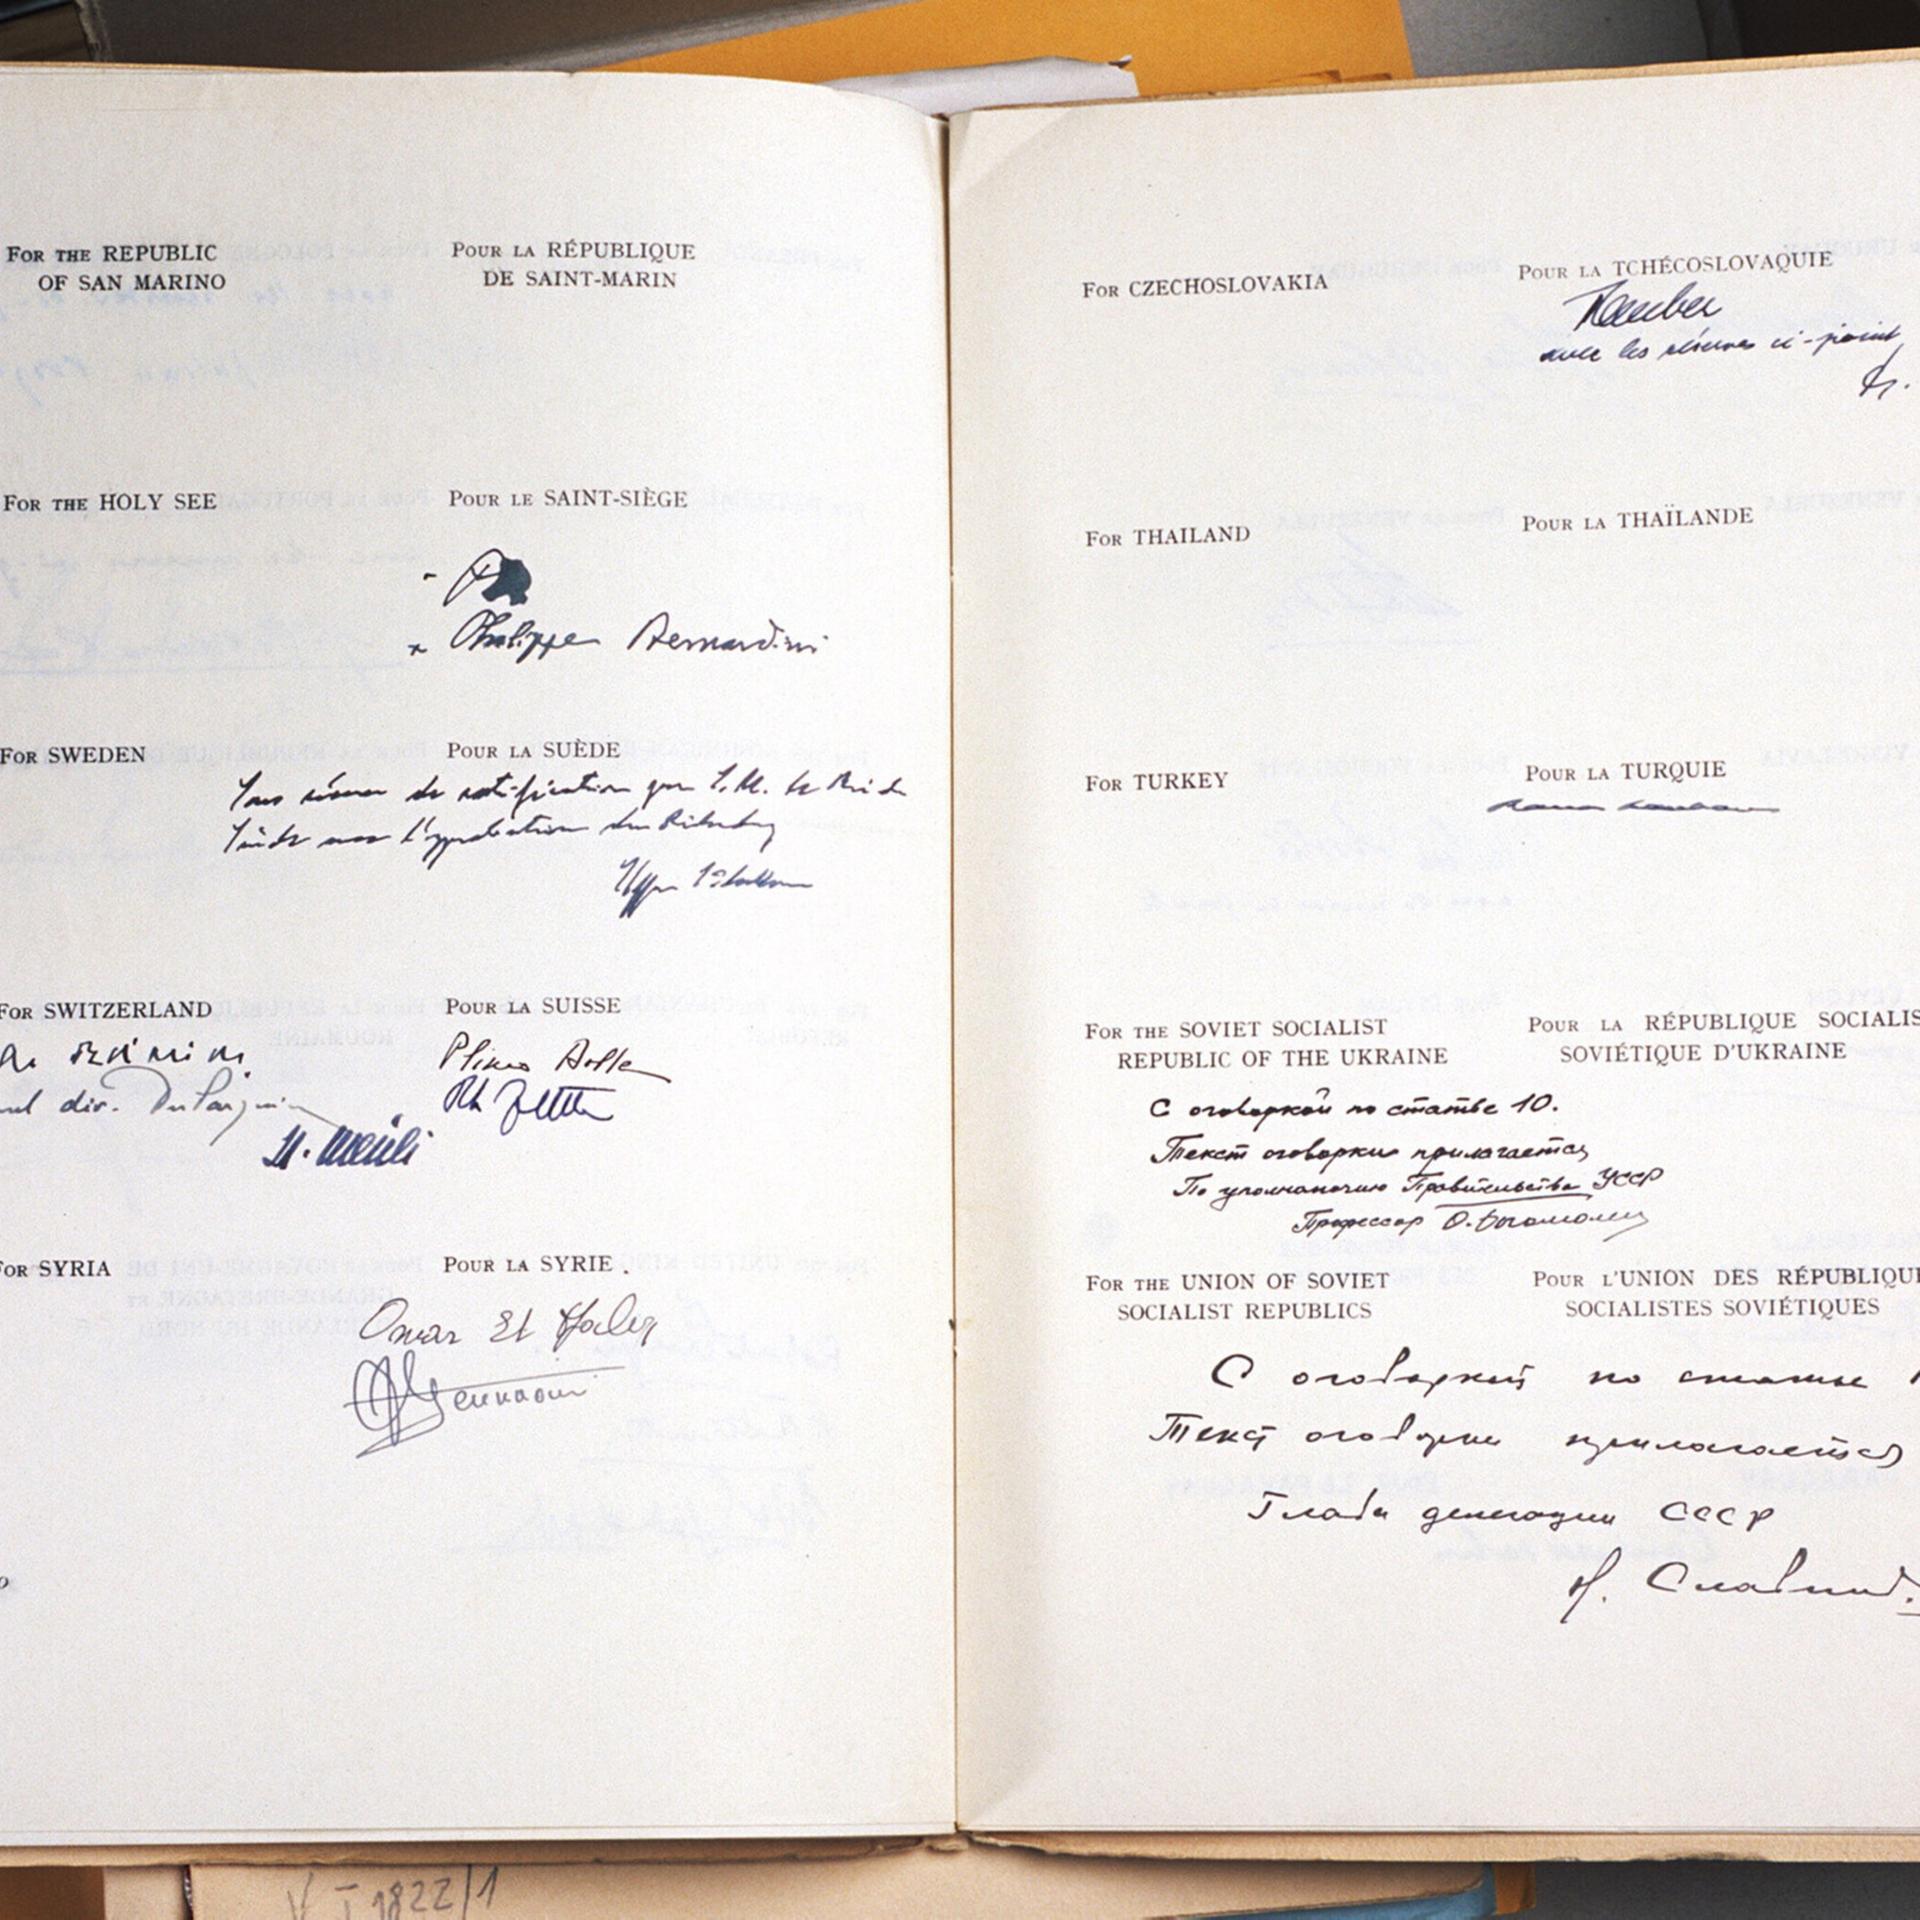 FOR THE REPUBLIC
OF SAN MARINO
POUR LA RÉPUBLIQUE
DE SAINT-MARIN
FOR THE HOLY SEE
POUR LE SAINT-SIÈGE
Philippe Bernardini
FOR SWEDEN
POUR LA SUÈDE
Sous réserve de ratification par S. M. le Roi de
Suède avec l'approbation du Riksdag
FOR SWITZERLAND
POUR LA SUISSE
Plinio Bolla
H. Meuli
FOR SYRIA
POUR LA SYRIE
Omar El
A. Gennaoui
FOR CZECHOSLOVAKIA
POUR LA TCHÉCOSLOVAQUIE
Tauber
avec les réserves ci-joint
FOR THAILAND
POUR LA THAÏLANDE
FOR TURKEY
POUR LA TURQUIE
FOR THE SOVIET SOCIALIST
REPUBLIC OF THE UKRAINE
POUR LA RÉPUBLIQUE SOCIALIS
SOVIÉTIQUE D'UKRAINE
С оговоркой по статье 10.
Текст оговорки прилагается
По уполномочию Правительства УССР
Профессор О. Богомолец
FOR THE UNION OF SOVIET
SOCIALIST REPUBLICS
POUR L'UNION DES RÉPUBLIQUE
SOCIALISTES SOVIÉTIQUES
С оговоркой по статье
Текст оговорки прилагается
Глава делегации СССР
Н. Славин.
V I 1822/1